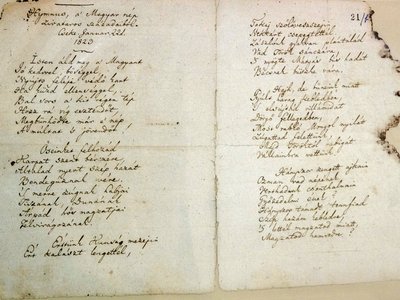 Hymnus, a' Magyar nép
zivataros századaiból.
Cseke, Januar. 22d.
1823
Isten áld meg a' Magyart
Jó kedvvel, bőséggel,
Nyújts feléje védő kart
Ha küzd ellenséggel;
Bal sors a' kit régen tép
Hozz rá víg esztendőt,
Megbűnhődte már a' nép
A' multat 's jövendőt.
Őseinket felhozád
Kárpát szent bérczére,
Általad nyert szép hazát
Bendegúznak vére.
'S merre zúgnak habjai
Tiszának, Dunának
Árpád hős magzatjai
Felvirágozának.
Értünk Kunság mezején
Ért kalászt lengettél,
21/
Tokaj szőlővesszein
Nektárt csepegtettél.
Zászlónk gyakran plántálád
Vad török sánczára
'S nyögte Mátyás bús hadát
Bécsnek büszke vára.
Hajh, de bűneink miatt
Gyúlt harag kebledben,
'S elsújtád villámidat
Dörgő fellegedben,
Most rabló Mongol nyilát
Zúgattad felettünk,
Majd töröktől rabigát
Vállainkra vettünk.
Hányszor zengett ajkain
Ozman vad népének
Vert hadunk csonthalmain
Győzedelmi ének!
Hányszor támadt tenfiad
Szép hazám kebledre,
'S lettél magzatod miatt
Magzatod hamvvedre.